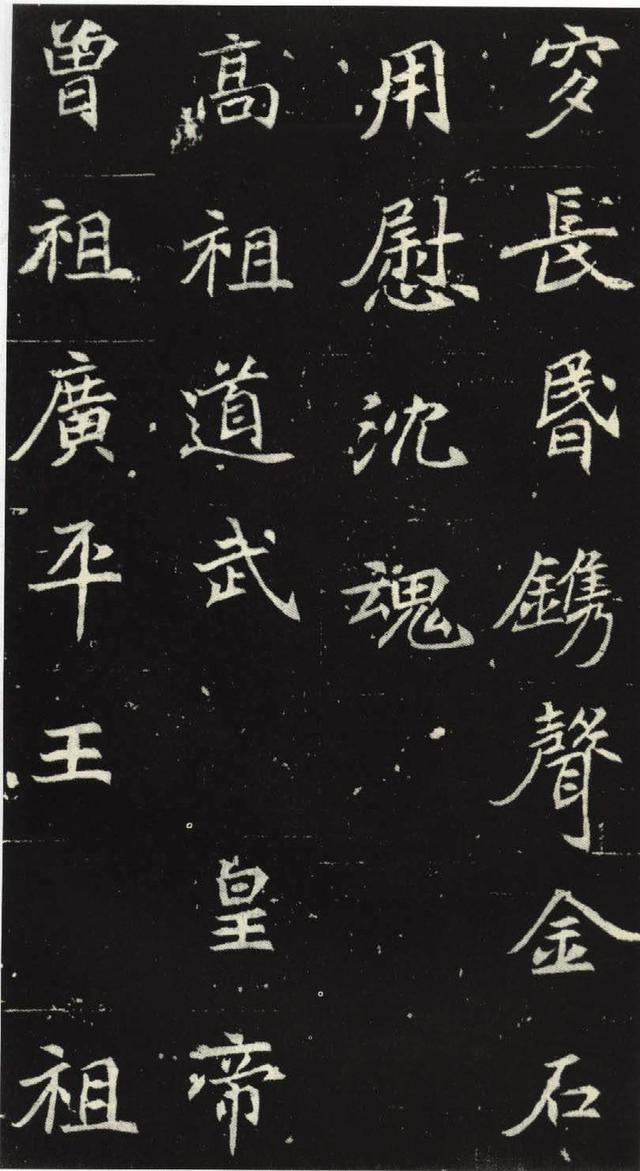 穸長昬鐫聲金石
用慰沈魂
高祖道武 皇帝
曾祖廣平王 祖